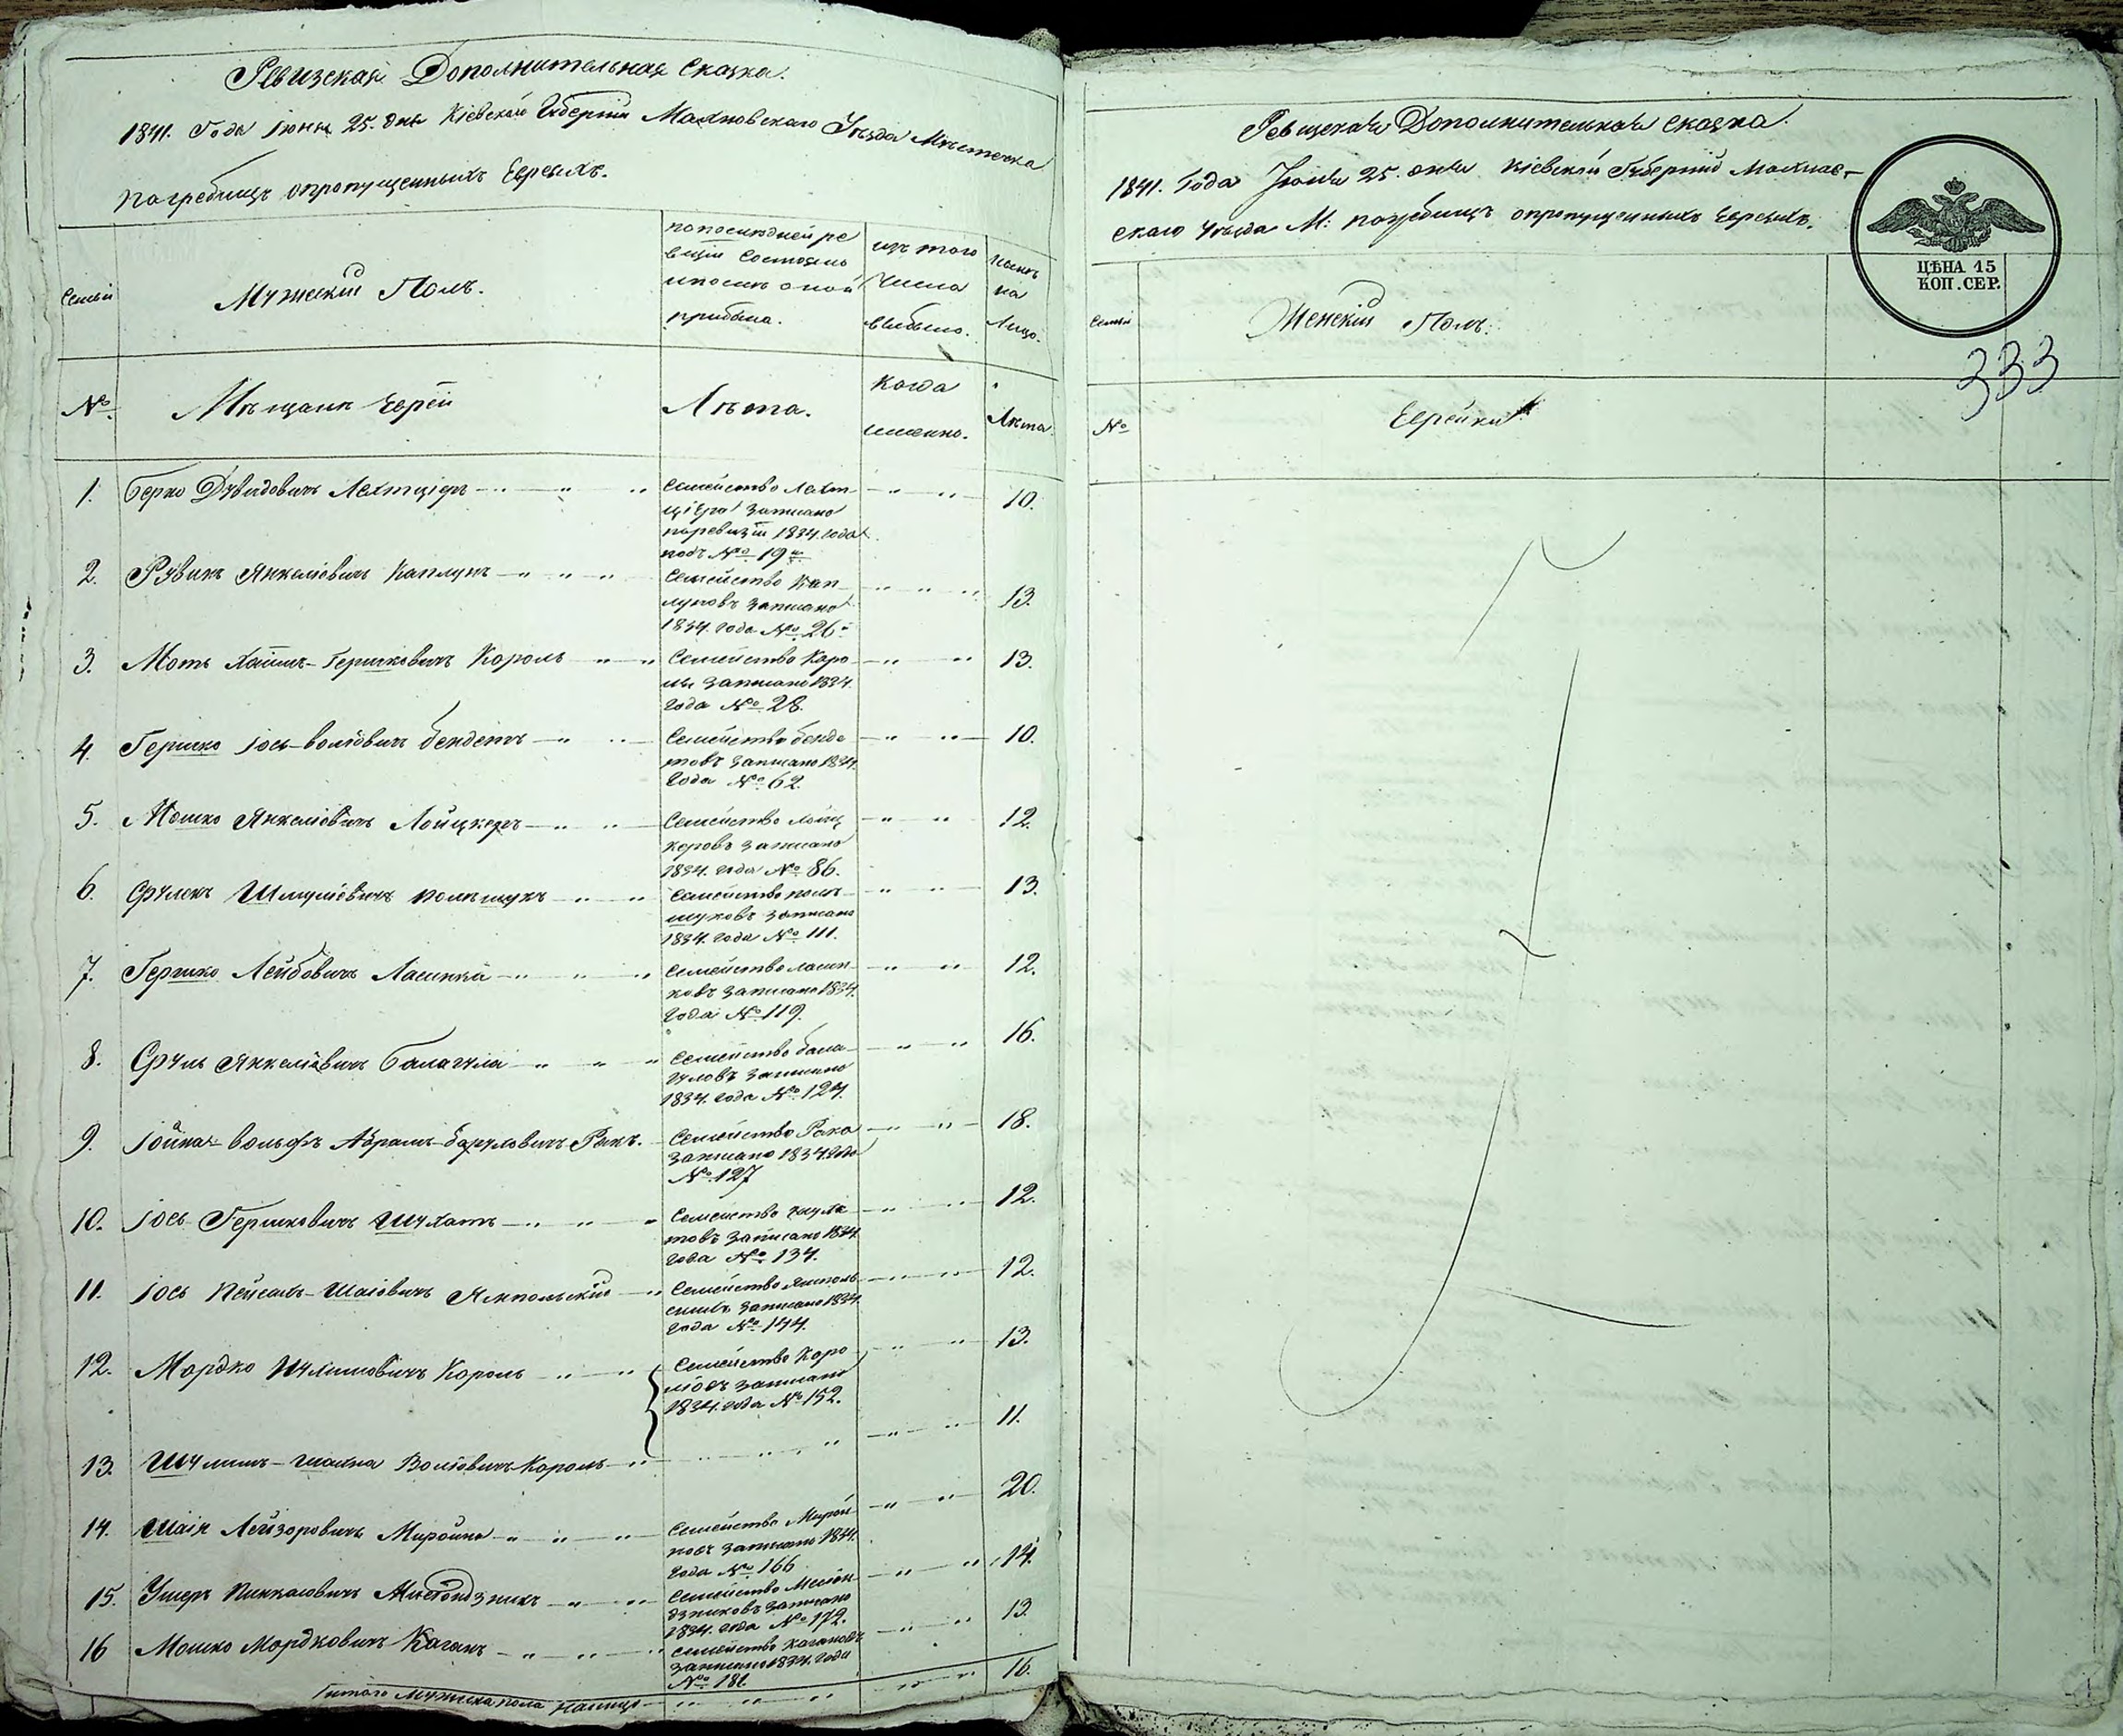 Ревизская Дополнительная Сказка.
1841. Года Іюня 25. дня Кіевской Губерніи Махновскаго Уѣзда Мѣстечка
Погребищъ опропущенныхъ Евреяхъ.
Семьи
Мужескій Полъ.
по последней ре
визіи состояло
и после оной
прибыло.
изъ того
числа
выбыло.
ныне
на
Лицо.
№
Мѣщане Евреи
Лѣта.
когда
именно.
Лѣта
1. Берко Дувидовичъ Лехтціеръ
Семейство Лехт-
ціера записано
поревизіи 1834. года
подъ № 19м
10.
2. Рувинъ Янкеліовичъ Каплунъ
Семейство Кап
луновъ записано
1834. года № 26.
13.
3. Моть Хаимъ-Гершковичъ Король
Семейство Коро
ля записано 1834.
года № 28.
13.
4. Гершко Іось-Воліовичъ Бендетъ
Семейство Бенде
товъ записано 1834.
года № 62.
10.
5. Мошко Янкеліовичъ Лойцкеръ
Семейство Лойц
керовъ записано
1834. года № 86.
12.
6. Срулень Шмуліовичъ Полищукъ
Семейство Поли
щуковъ записано
1834. года № 111.
13.
7. Гершко Лейбовичъ
Семейство
записано 1834.
года № 119.
12.
8. Сруль Янкеліовичъ Балагула
Семейство Бала
гуловъ записано
1834. года № 124.
16.
9. Іойна-Вольфъ Абрамъ-Борулювичъ Ракъ.
Семейство Рака
записано 1834. года
№ 127
18.
10. Іось Гершковичъ Шухатъ
Семейство
товъ записано 1834
года № 134.
12.
11. Іось Пейсахъ-Шаіовичъ Ямпольскій
Семейство Ямполь
скихъ записано 1834.
года № 144.
12.
12. Мордко Шулимовичъ Король
Семейство Коро
ліовъ записано
1834. года № 152.
13.
13. Шулимъ-Шахна Воліовичъ Король
11.
14. Шаія Лейзоровичъ Миройна
Семейство Мирой
новъ записано 1834.
года № 166
20.
15. Ушеръ Пинхасовичъ
Семейство
дзниковъ записано
1834. года № 172.
14.
16 Мошко Мордковичъ Каганъ
Семейство Кагановъ
записано 1834. года
№ 181
13.
Итого Мужеска пола Налицо
16.
Ревизская Дополнительная Сказка.
1841. Года Іюня 25. дня Кіевской Губерніи Махнов-
скаго Уѣзда М: Погребищъ опропущенныхъ Евреяхъ.
ЦѢНА 15
КОП. СЕР.
333
Семьи
Женскій Полъ.
№
Еврейки